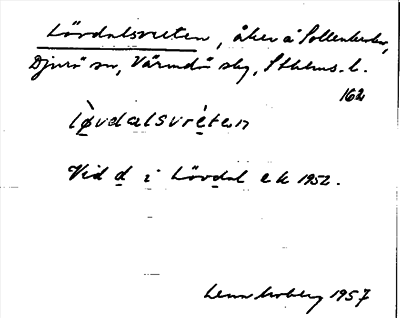 Lövdalsvreten, åker å Sollenkroka,
Djurö sn, Värmdö slg, Sthlms. l.
162
lø̀vdalsvréten
Vid d i Lövdal ek 1952.
1957